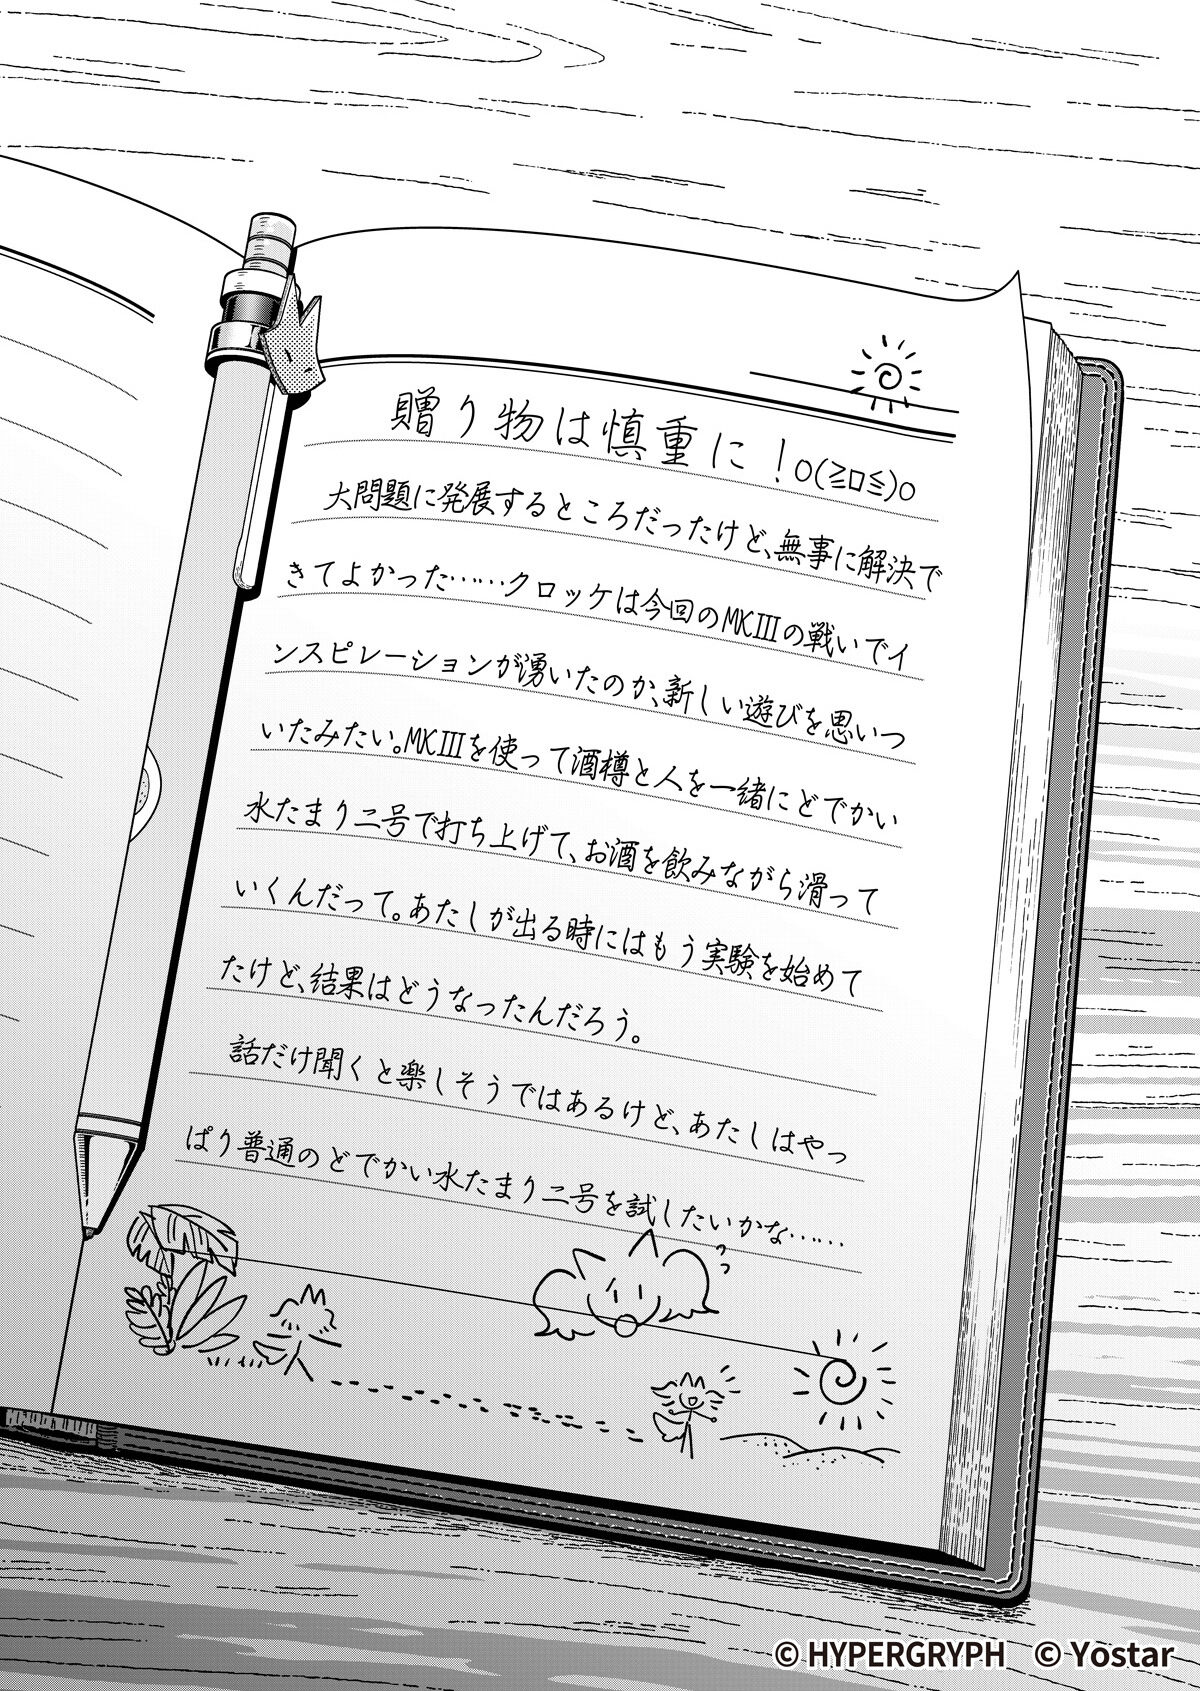 贈り物は慎重に！o(≧ロ≦)o
大問題に発展するところだったけど、無事に解決で
きてよかった……クロッケは今回のMKⅢの戦いでイ
ンスピレーションが湧いたのか、新しい遊びを思いつ
いたみたい。MKⅢを使って酒樽と人を一緒にどでかい
水たまり二号で打ち上げて、お酒を飲みながら滑って
いくんだって。あたしが出る時にはもう実験を始めて
たけど、結果はどうなったんだろう。
話だけ聞くと楽しそうではあるけど、あたしはやっ
ぱり普通のどでかい水たまり二号を試したいかな……
© HYPERGRYPH © Yostar